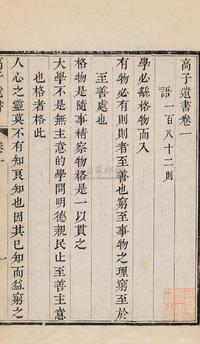 高子遺書卷一
語一百八十二則
學必繇格物而入
有物必有則則者至善也窮至事物之理窮至於
至善處也
格物是隨事精察物格是一以貫之
大學不是無主意的學問明德親民止至善主意
也格者格此
人心之靈莫不有知良知也因其已知而益窮之